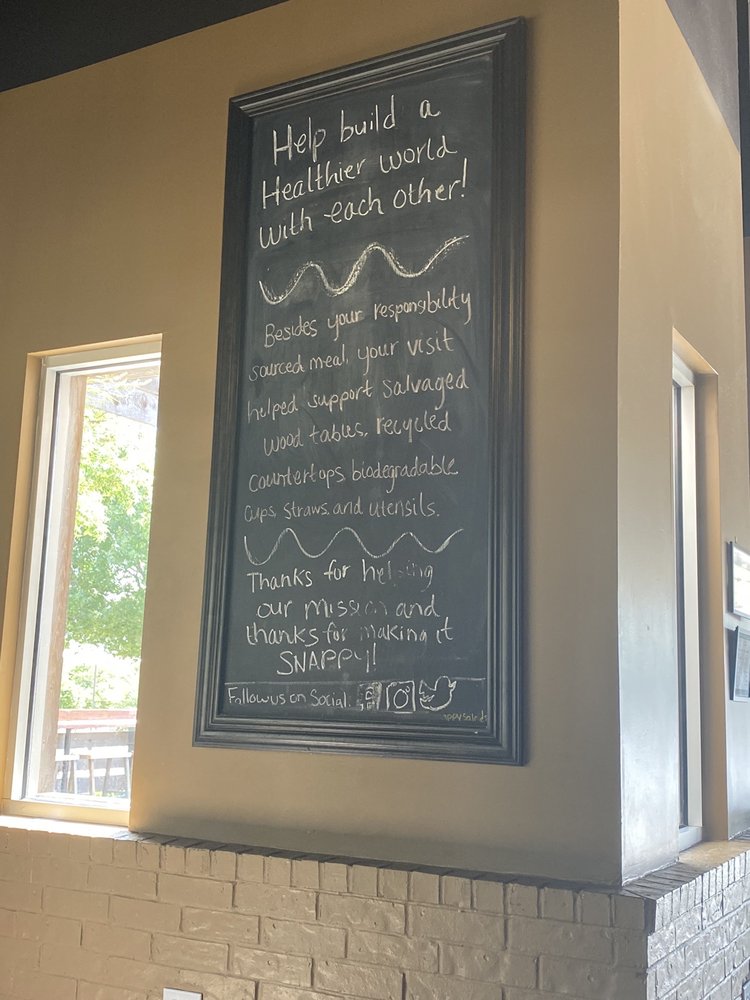 Help build a
Healthier world
with each other!
Besides your responsibility
sourced meal, your visit
helped support salvaged
wood tables, recycled
countertops, biodegradable
cups, straws, and utensils.
Thanks for helping
our mission and
thanks for making it
SNAPPY!!
Follow us on Social.